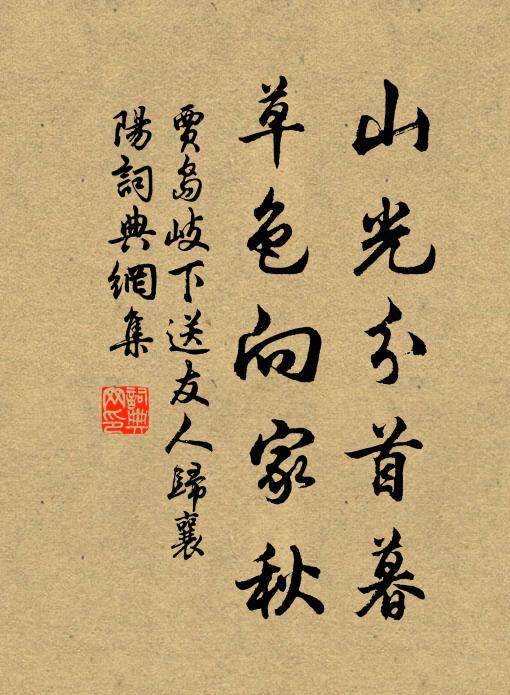 山光分首暮
草色向家秋
賈島岐下送友人歸襄
陽詞典網集
詞典
网印